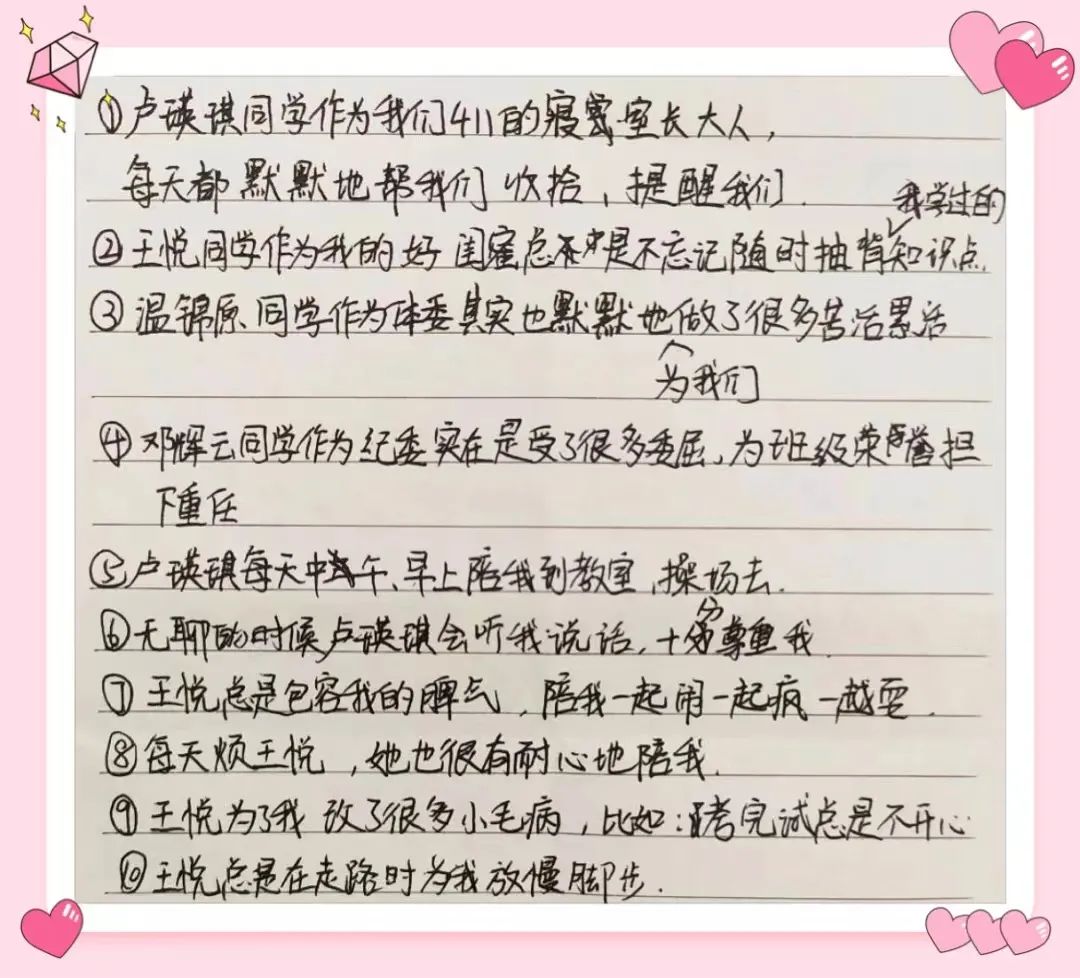 ①卢瑛琪同学作为我们411的寝室长大人，
每天都默默地帮我们收拾，提醒我们.
②王悦同学作为我的好闺蜜总是不忘记随时抽背我学过的知识点.
③温锦原同学作为体委其实也默默地为我们做了很多苦活累活
④邓辉云同学作为纪委实在是受了很多委屈，为班级荣誉担
下重任
⑤卢瑛琪每天中午、早上陪我到教室,操场去.
⑥无聊的时候卢瑛琪会听我说话，十分尊重我.
⑦王悦总是包容我的脾气，陪我一起闹一起疯一起耍.
⑧每天烦王悦，她也很有耐心地陪我.
⑨王悦为了我改了很多小毛病，比如：考完试总是不开心
⑩王悦总是在走路时为我放慢脚步.